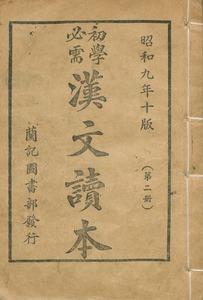 昭和九年十版
(第二冊)
初學
必需
漢文讀本
蘭記圖書部發行